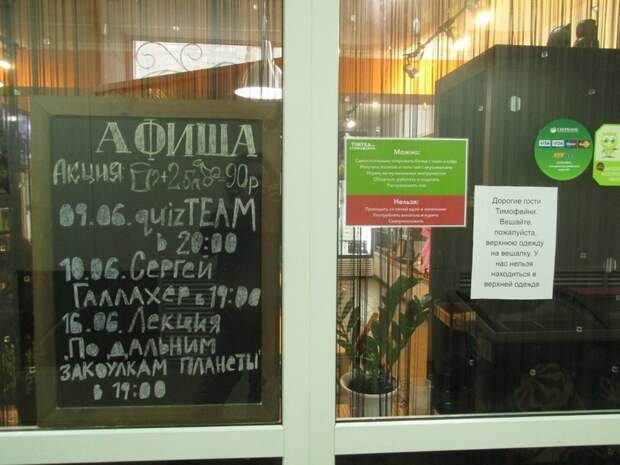 АФИША
Акция +2 90р
09.06. quizTEAM
в 20:00
10.06. Сергей
Галлахер в 19:00
16.06. Лекция
"По дальним
закоулкам планеты"
в 19:00
Можно:
Общаться, работать и отдыхать
Нельзя:
Сквернословить
СБЕРБАНК
VISA
Дорогие гости
Тимофейни.
Вешайте,
пожалуйста,
верхнюю одежду
на вешалку. У
нас нельзя
находиться в
верхней одежде.